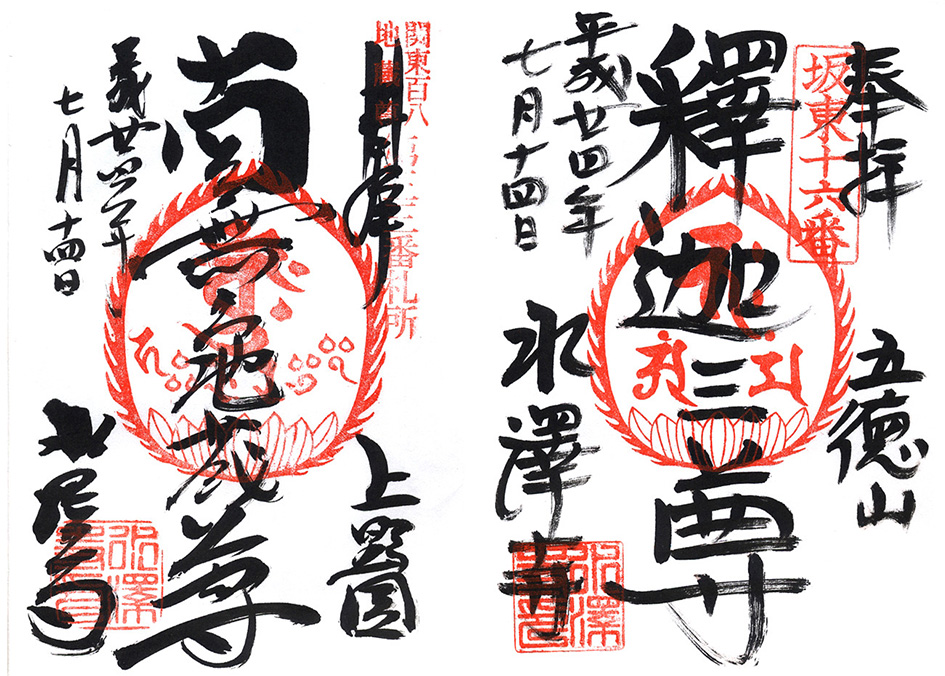 奉拝
坂東十六番
五徳山
釋迦三尊
平成廿四年
七月十四日
水澤寺
水澤
奉拝
関東百八
地蔵尊
三番札所
上野國
南無地蔵尊
平成廿四年
七月十四日
水澤寺
水澤